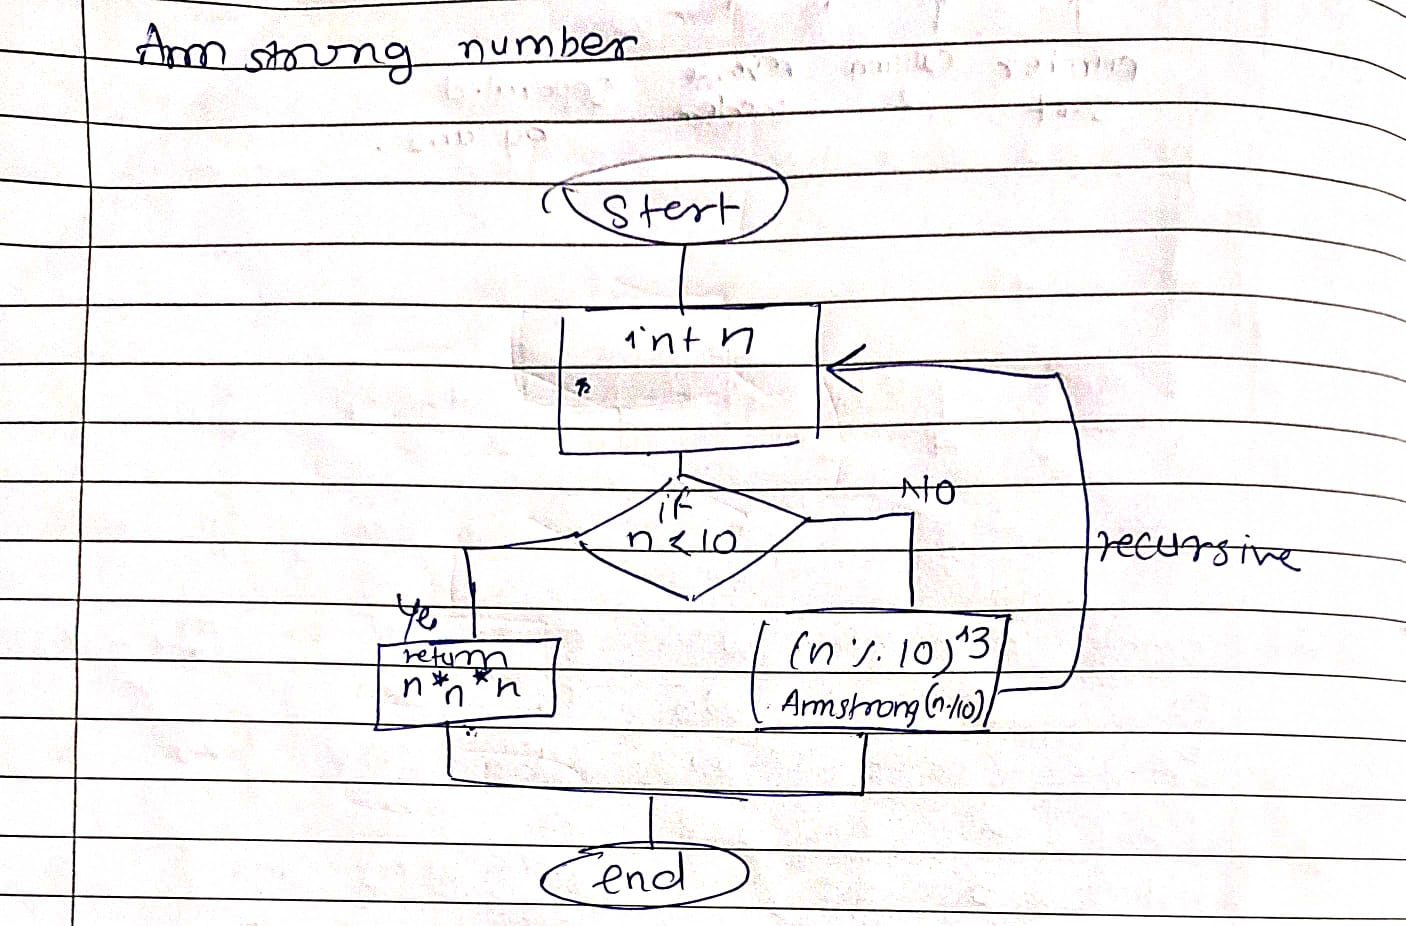 Armstrong number
Stert
int n
if
n < 10
NO
recursive
Ye
return
n*n*n
(n % 10)^3
Armstrong(n/10)
end